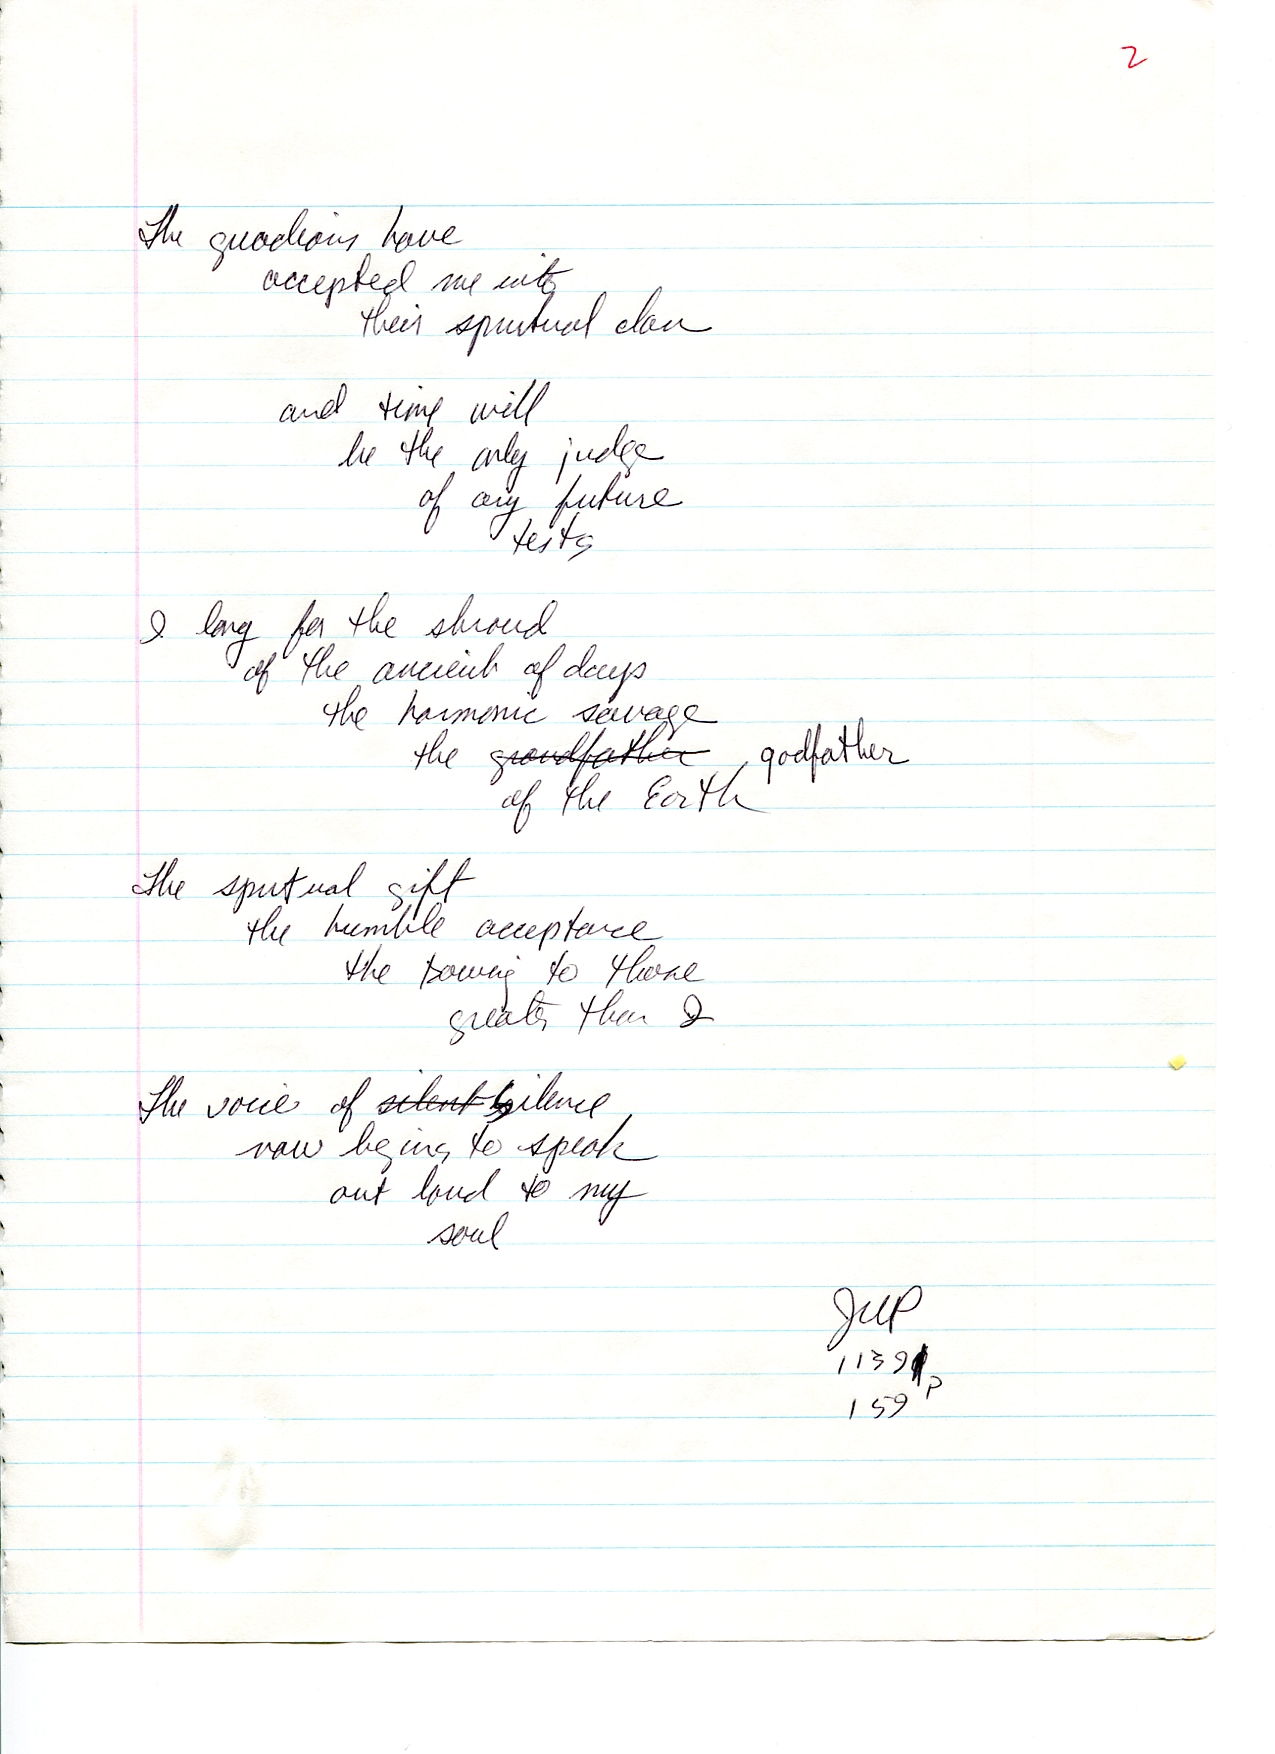 2
The guardians have
accepted me into
their spiritual clan
and time will
be the only judge
of any future
tests
I long for the shroud
of the ancient of days
the harmonic savage
the grandfather godfather
of the Earth
The spiritual gift
the humble acceptance
the bowing to those
greater than I
The voice of silent silence
now begins to speak
out loud to my
soul
1139 P
159